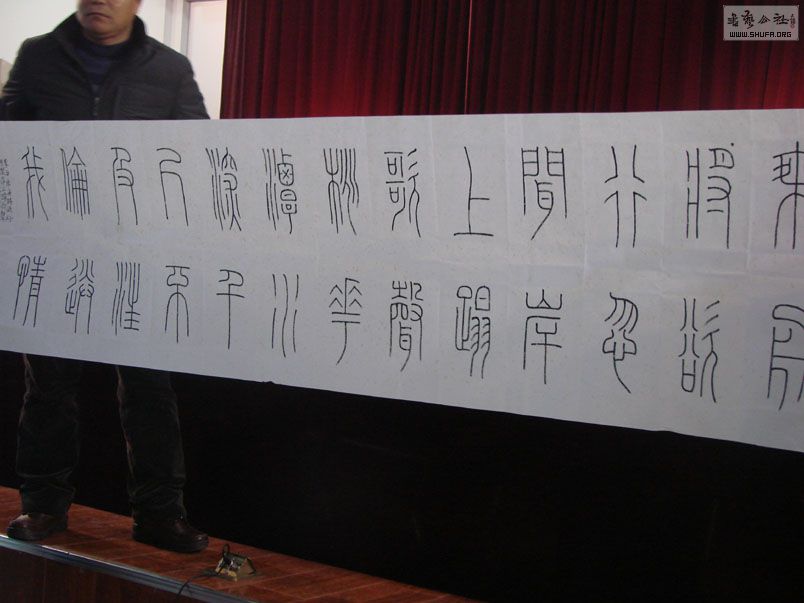 乘舟
將欲
行忽
聞岸
上蹋
歌聲
桃花
潭水
深千
尺不
及汪
倫送
我情
書藝公社
WWW.SHUFA.ORG